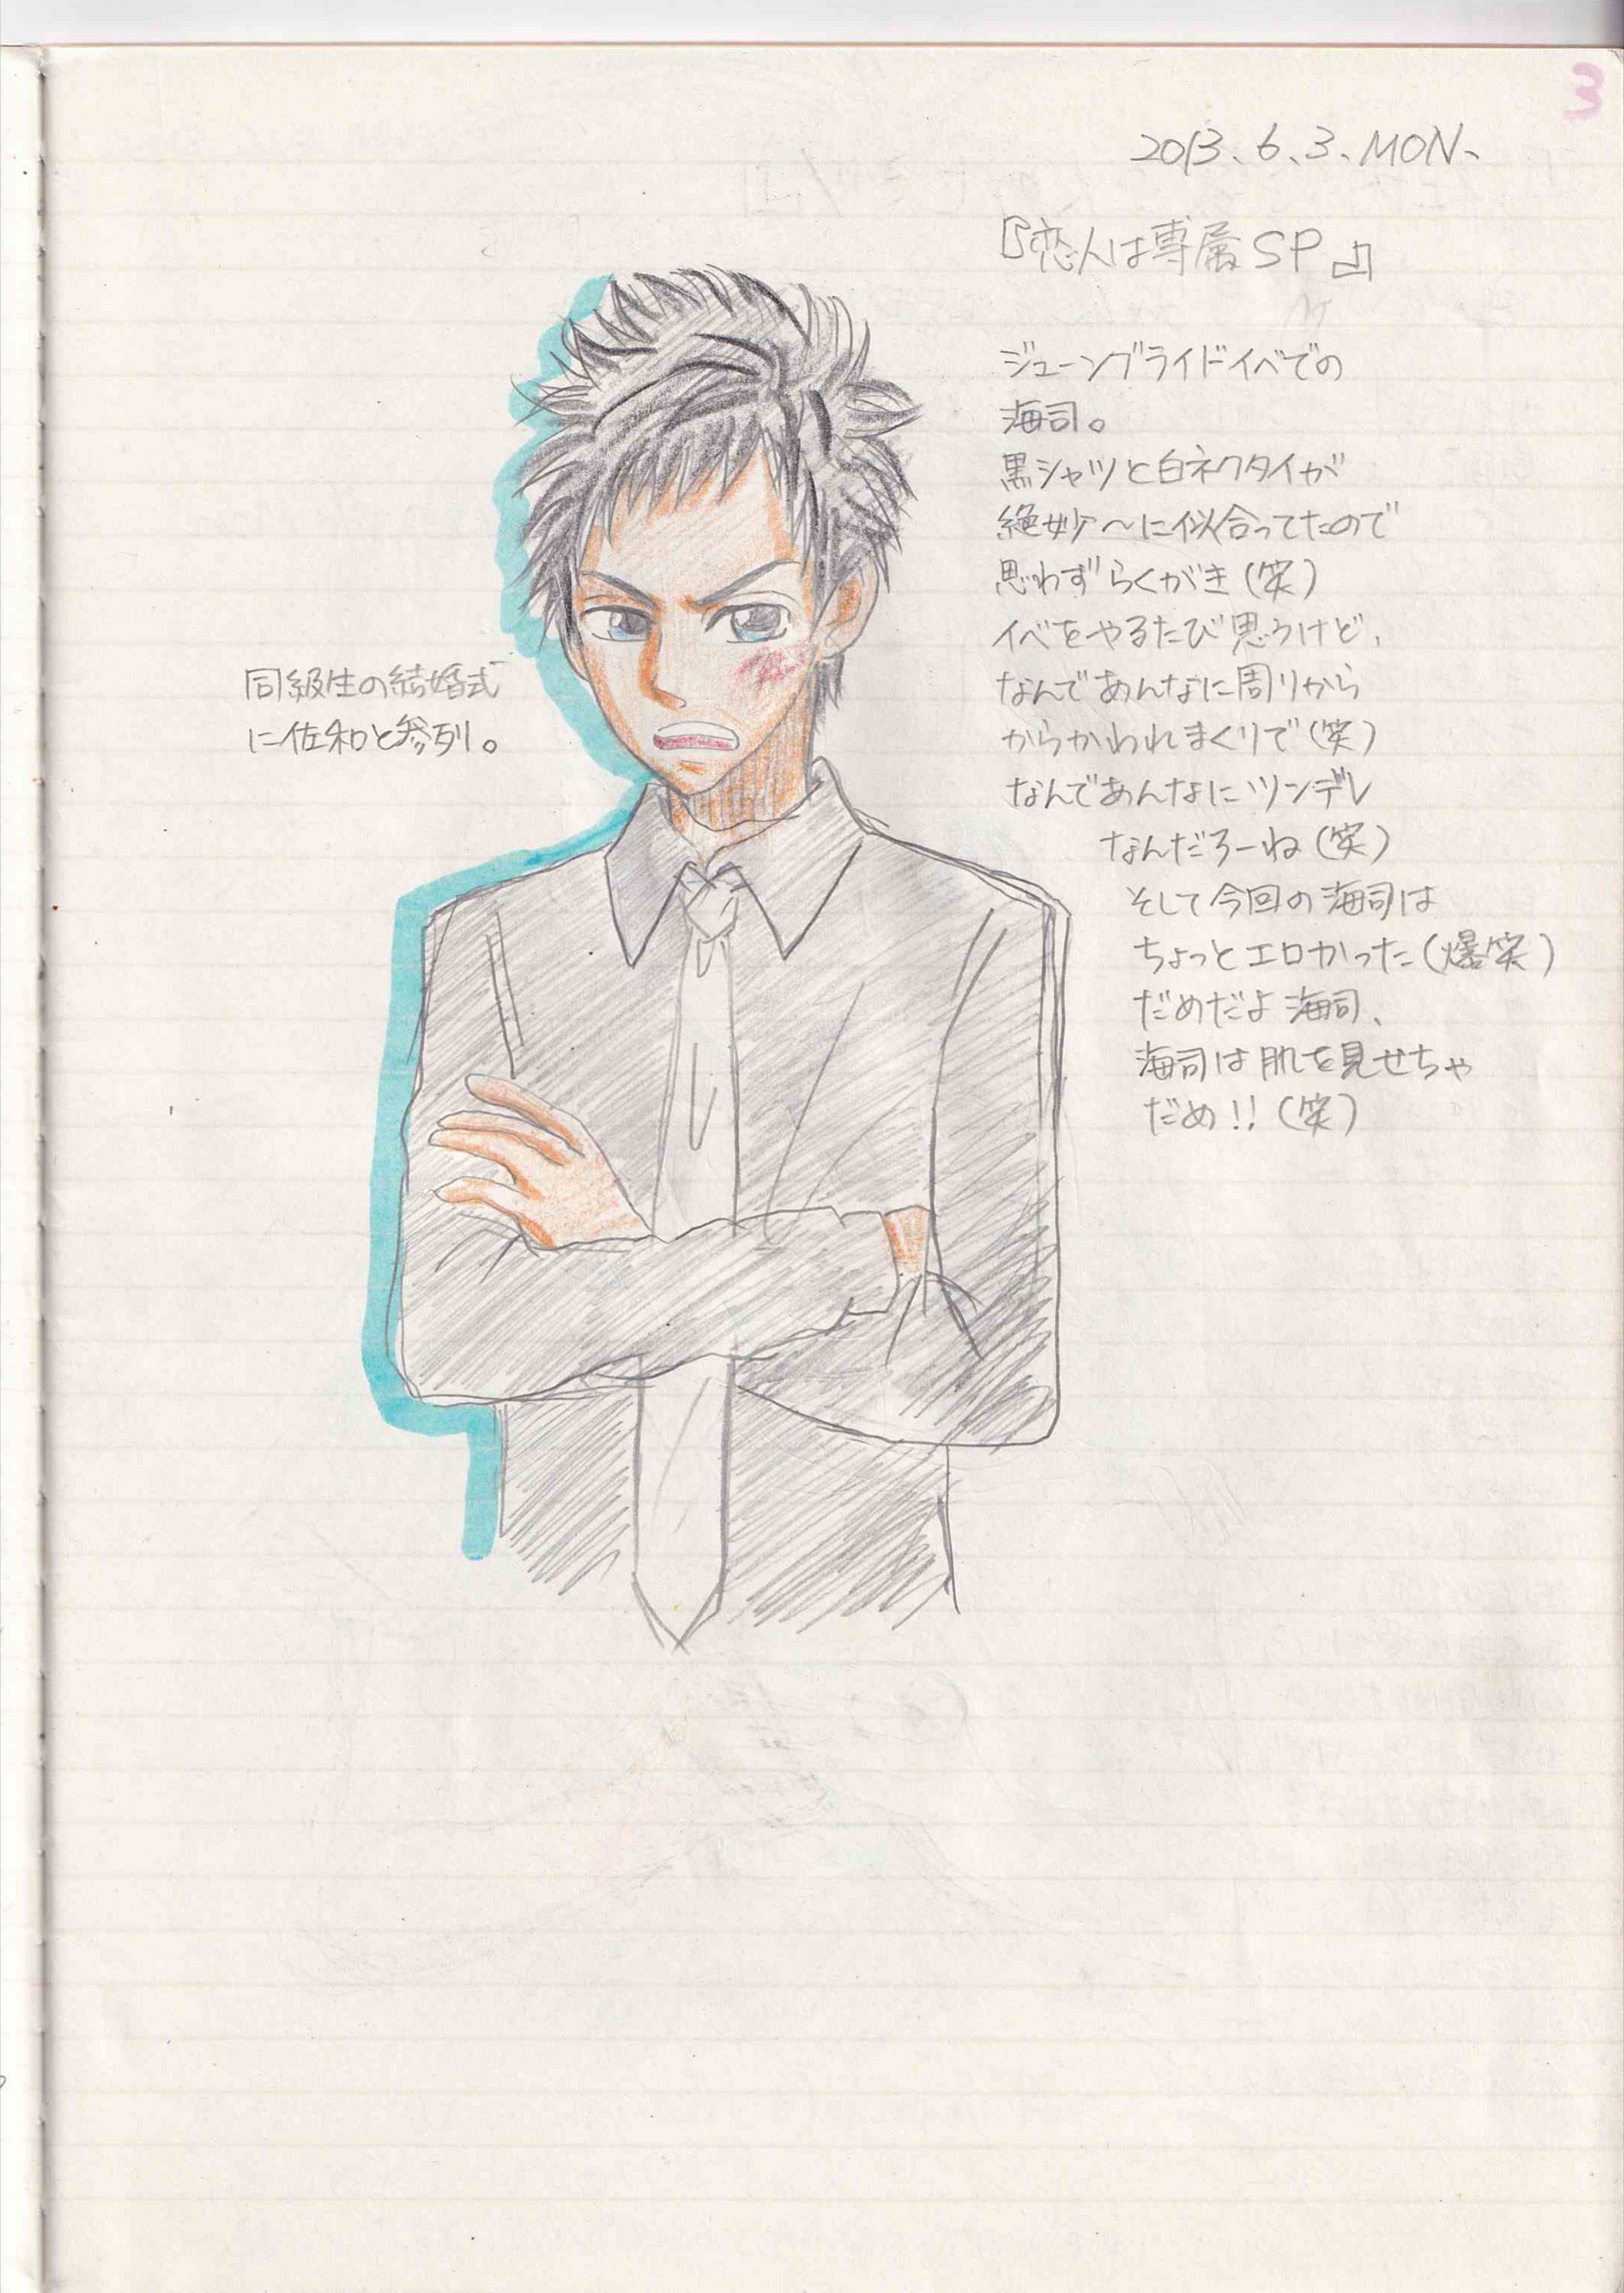 3
2013.6.3.MON.
『恋人は専属SP』
ジューンブライドイベでの
海司。
黒シャツと白ネクタイが
絶妙〜に似合ってたので
思わずらくがき(笑)
イベをやるたび思うけど、
なんであんなに周りから
からかわれまくりで(笑)
なんであんなにツンデレ
なんだろーね(笑)
そして今回の海司は
ちょっとエロかった(爆笑)
だめだよ海司、
海司は肌を見せちゃ
だめ!!(笑)
同級生の結婚式
に佐和と参列。